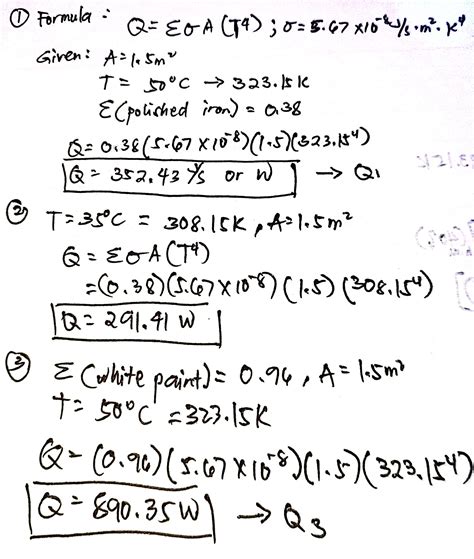 ① Formula : Q = ΣσA(T⁴) ; σ = 5.67 x10⁻⁸ J/s·m²·K⁴
Given: A = 1.5m²
T = 50°C → 323.15K
Σ(polished iron) = 0.38
Q = 0.38(5.67 x10⁻⁸)(1.5)(323.15⁴)
Q = 352.43 J/s or W → Q₁
② T = 35°C = 308.15K , A = 1.5m²
Q = ΣσA(T⁴)
= (0.38)(5.67 x10⁻⁸)(1.5)(308.15⁴)
Q = 291.41 W
③ Σ (white paint) = 0.96 , A = 1.5m²
T = 50°C = 323.15K
Q = (0.96)(5.67 x10⁻⁸)(1.5)(323.15⁴)
Q = 890.35W → Q₃